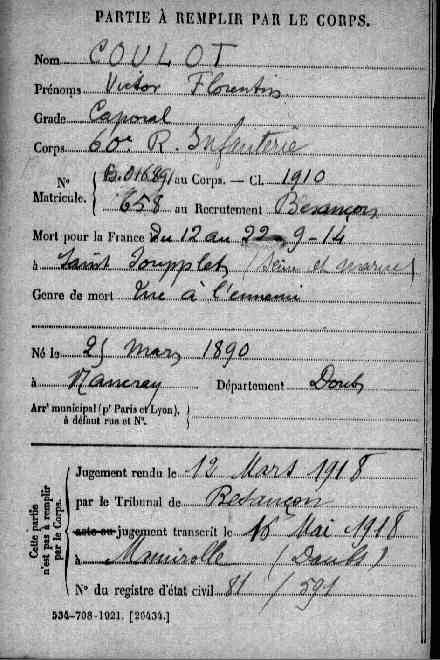 PARTIE À REMPLIR PAR LE CORPS.
Nom COULOT
Prénoms Victor Florentin
Grade Caporal
Corps 60e R. Infanterie
No Matricule. au Corps. — Cl. 1910
658 au Recrutement Besançon
Mort pour la France Du 12 au 22-9-14
à Saint Soupplets (Seine et marne)
Genre de mort Tué à l'ennemi
Né le 25 mars 1890
à Nancray Département Doubs
Arrt municipal (pr Paris et Lyon),
à défaut rue et No.
Cette partie
n'est pas à remplir
par le Corps.
Jugement rendu le 12 Mars 1918
par le Tribunal de Besançon
acte ou jugement transcrit le 16 Mai 1918
à Mamirolle (Doubs)
No du registre d'état civil 81 / 591
534-708-1921. [26434.]